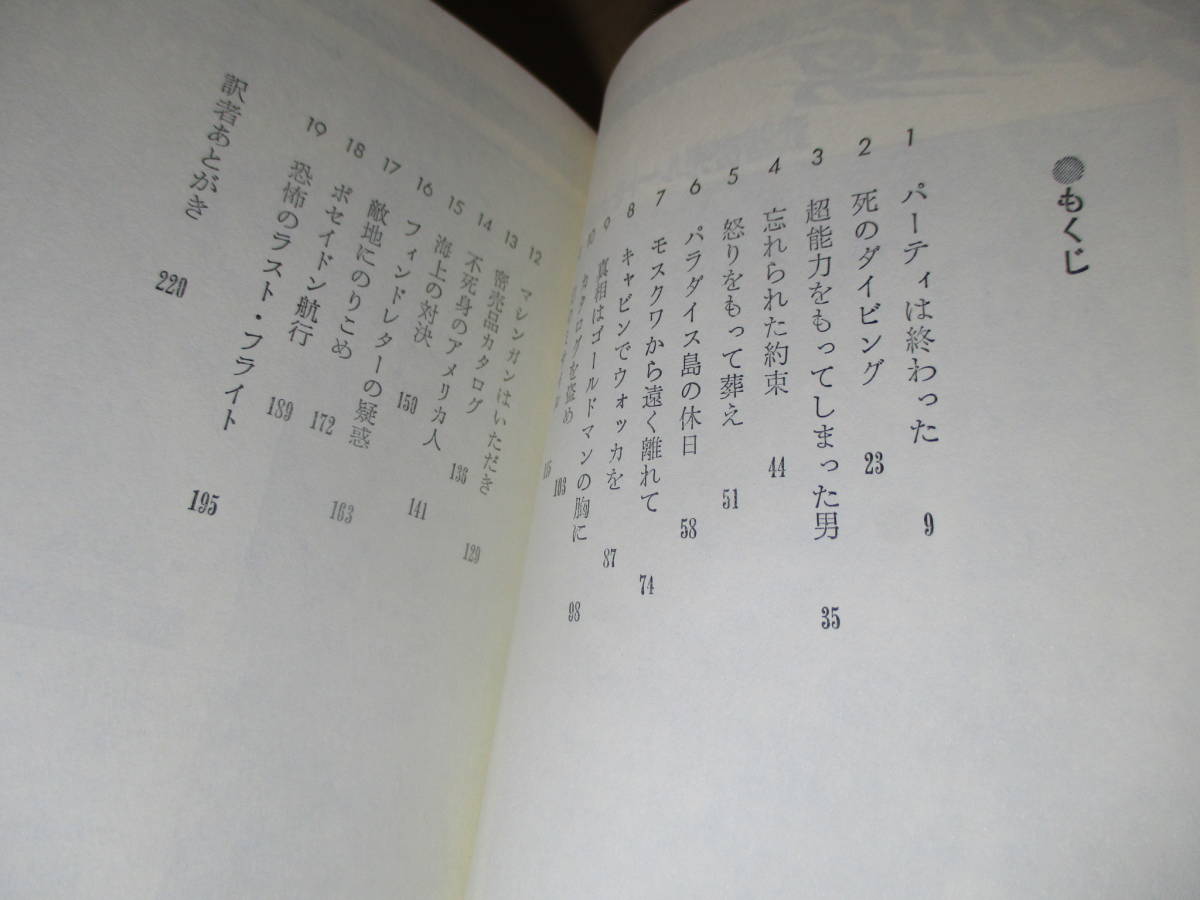 もくじ
1 パーティは終わった 9
2 死のダイビング 23
3 超能力をもってしまった男 35
4 忘れられた約束 44
5 怒りをもって葬え 51
6 パラダイス島の休日 58
7 モスクワから遠く離れて 74
8 キャビンでウォッカを 87
9 真相はゴールドマンの胸に 98
10 カタログを盗め 103
12 マシンガンはいただき 129
13 密売品カタログ
14 不死身のアメリカ人 141
15 海上の対決 150
16 フィンドレターの疑惑 163
17 敵地にのりこめ 172
18 ポセイドン航行 189
19 恐怖のラスト・フライト 195
訳者あとがき 220